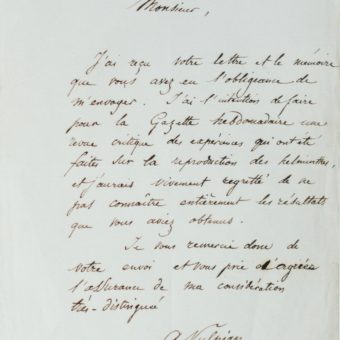 Monsieur,
J'ai reçu votre lettre et le mémoire
que vous avez eu l'obligeance de
m'envoyer. J'ai l'intention de faire
pour la Gazette hebdomadaire une
revue critique des expériences qui ont été
faites sur la reproduction des helminthes,
et j'aurais vivement regretté de ne
pas connaitre entièrement les résultats
que vous aviez obtenus.
Je vous remercie donc de
votre envoi et vous prie d'agréer
l'assurance de ma considération
très-distinguée
A Vulpian